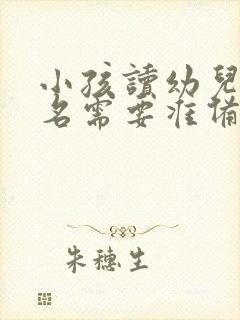 小孩讀幼兒
名需要准備
朱穗生